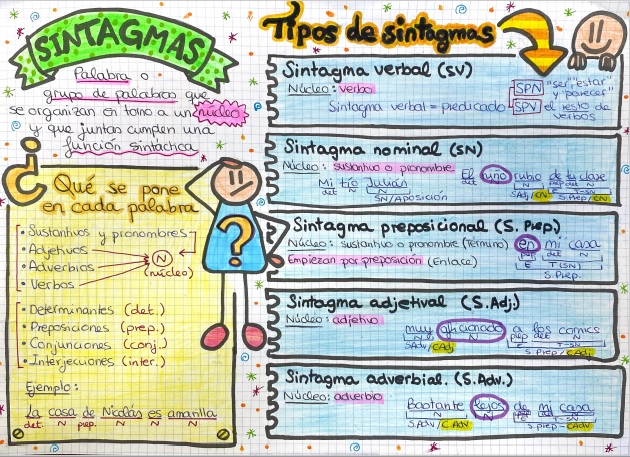 SINTAGMAS
Palabra o
grupo de palabras que
se organizan en torno a un núcleo
y que juntas cumplen una
función sintáctica.
¿
Qué se pone
en cada palabra
• Sustantivos y pronombres
• Adjetivos
• Adverbios
• Verbos
N
(núcleo)
• Determinantes (det.)
• Preposiciones (prep.)
• Conjunciones (conj.)
• Interjecciones (inter.)
Ejemplo:
La casa de Nicolás es amarilla
det. N prep. N N N
?
Tipos de sintagmas
Sintagma verbal (SV)
Núcleo: verbo
Sintagma verbal = predicado
SPN "ser", "estar"
y "parecer"
SPV el resto de
verbos
Sintagma nominal (SN)
Núcleo: sustantivo o pronombre
Mi tío Julián
det N N
SN/Aposición
El niño rubio de tu clase
det N N prep det N
SAdj/CN S.Prep/CN
Sintagma preposicional (S. Prep)
Núcleo: sustantivo o pronombre (Término)
Empiezan por preposición (Enlace)
en mi casa
prep det N
E T(SN)
S.Prep.
Sintagma adjetival (S.Adj.)
Núcleo: adjetivo
muy aficionado a los comics
N N prep det N
SAdv/CAdj E T-SN
S.Prep-CAdj
Sintagma adverbial. (S.Adv.)
Núcleo: adverbio
Bastante lejos de mi casa
N N prep det N
S.Adv/C.Adv E T-SN
S.prep-CAdv